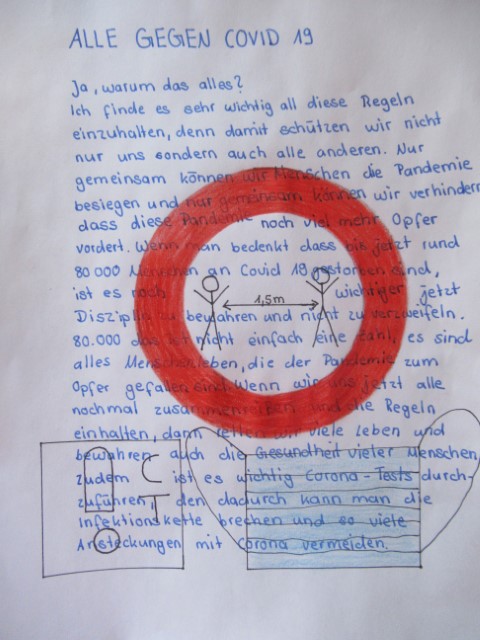 ALLE GEGEN COVID 19
Ja, warum das alles?
Ich finde es sehr wichtig all diese Regeln
einzuhalten, denn damit schützen wir nicht
nur uns sondern auch alle anderen. Nur
gemeinsam können wir Menschen die Pandemie
besiegen und nur gemeinsam können wir verhindern
dass diese Pandemie noch viel mehr Opfer
vordert. Wenn man bedenkt dass bis jetzt rund
80 000 Menschen an Covid 19 gestorben sind,
ist es noch wichtiger jetzt
Disziplin zu bewahren und nicht zu verzweifeln.
1,5m
80.000 das ist nicht einfach eine Zahl, es sind
alles Menschenleben, die der Pandemie zum
Opfer gefallen sind. Wenn wir uns jetzt alle
nochmal zusammenreißen und die Regeln
einhalten, dann retten wir viele Leben und
bewahren auch die Gesundheit vieler Menschen
zudem ist es wichtig Corona-Tests durch-
zuführen, den dadurch kann man die
Infektionskette brechen und so viele
Ansteckungen mit Corona vermeiden.
C
T